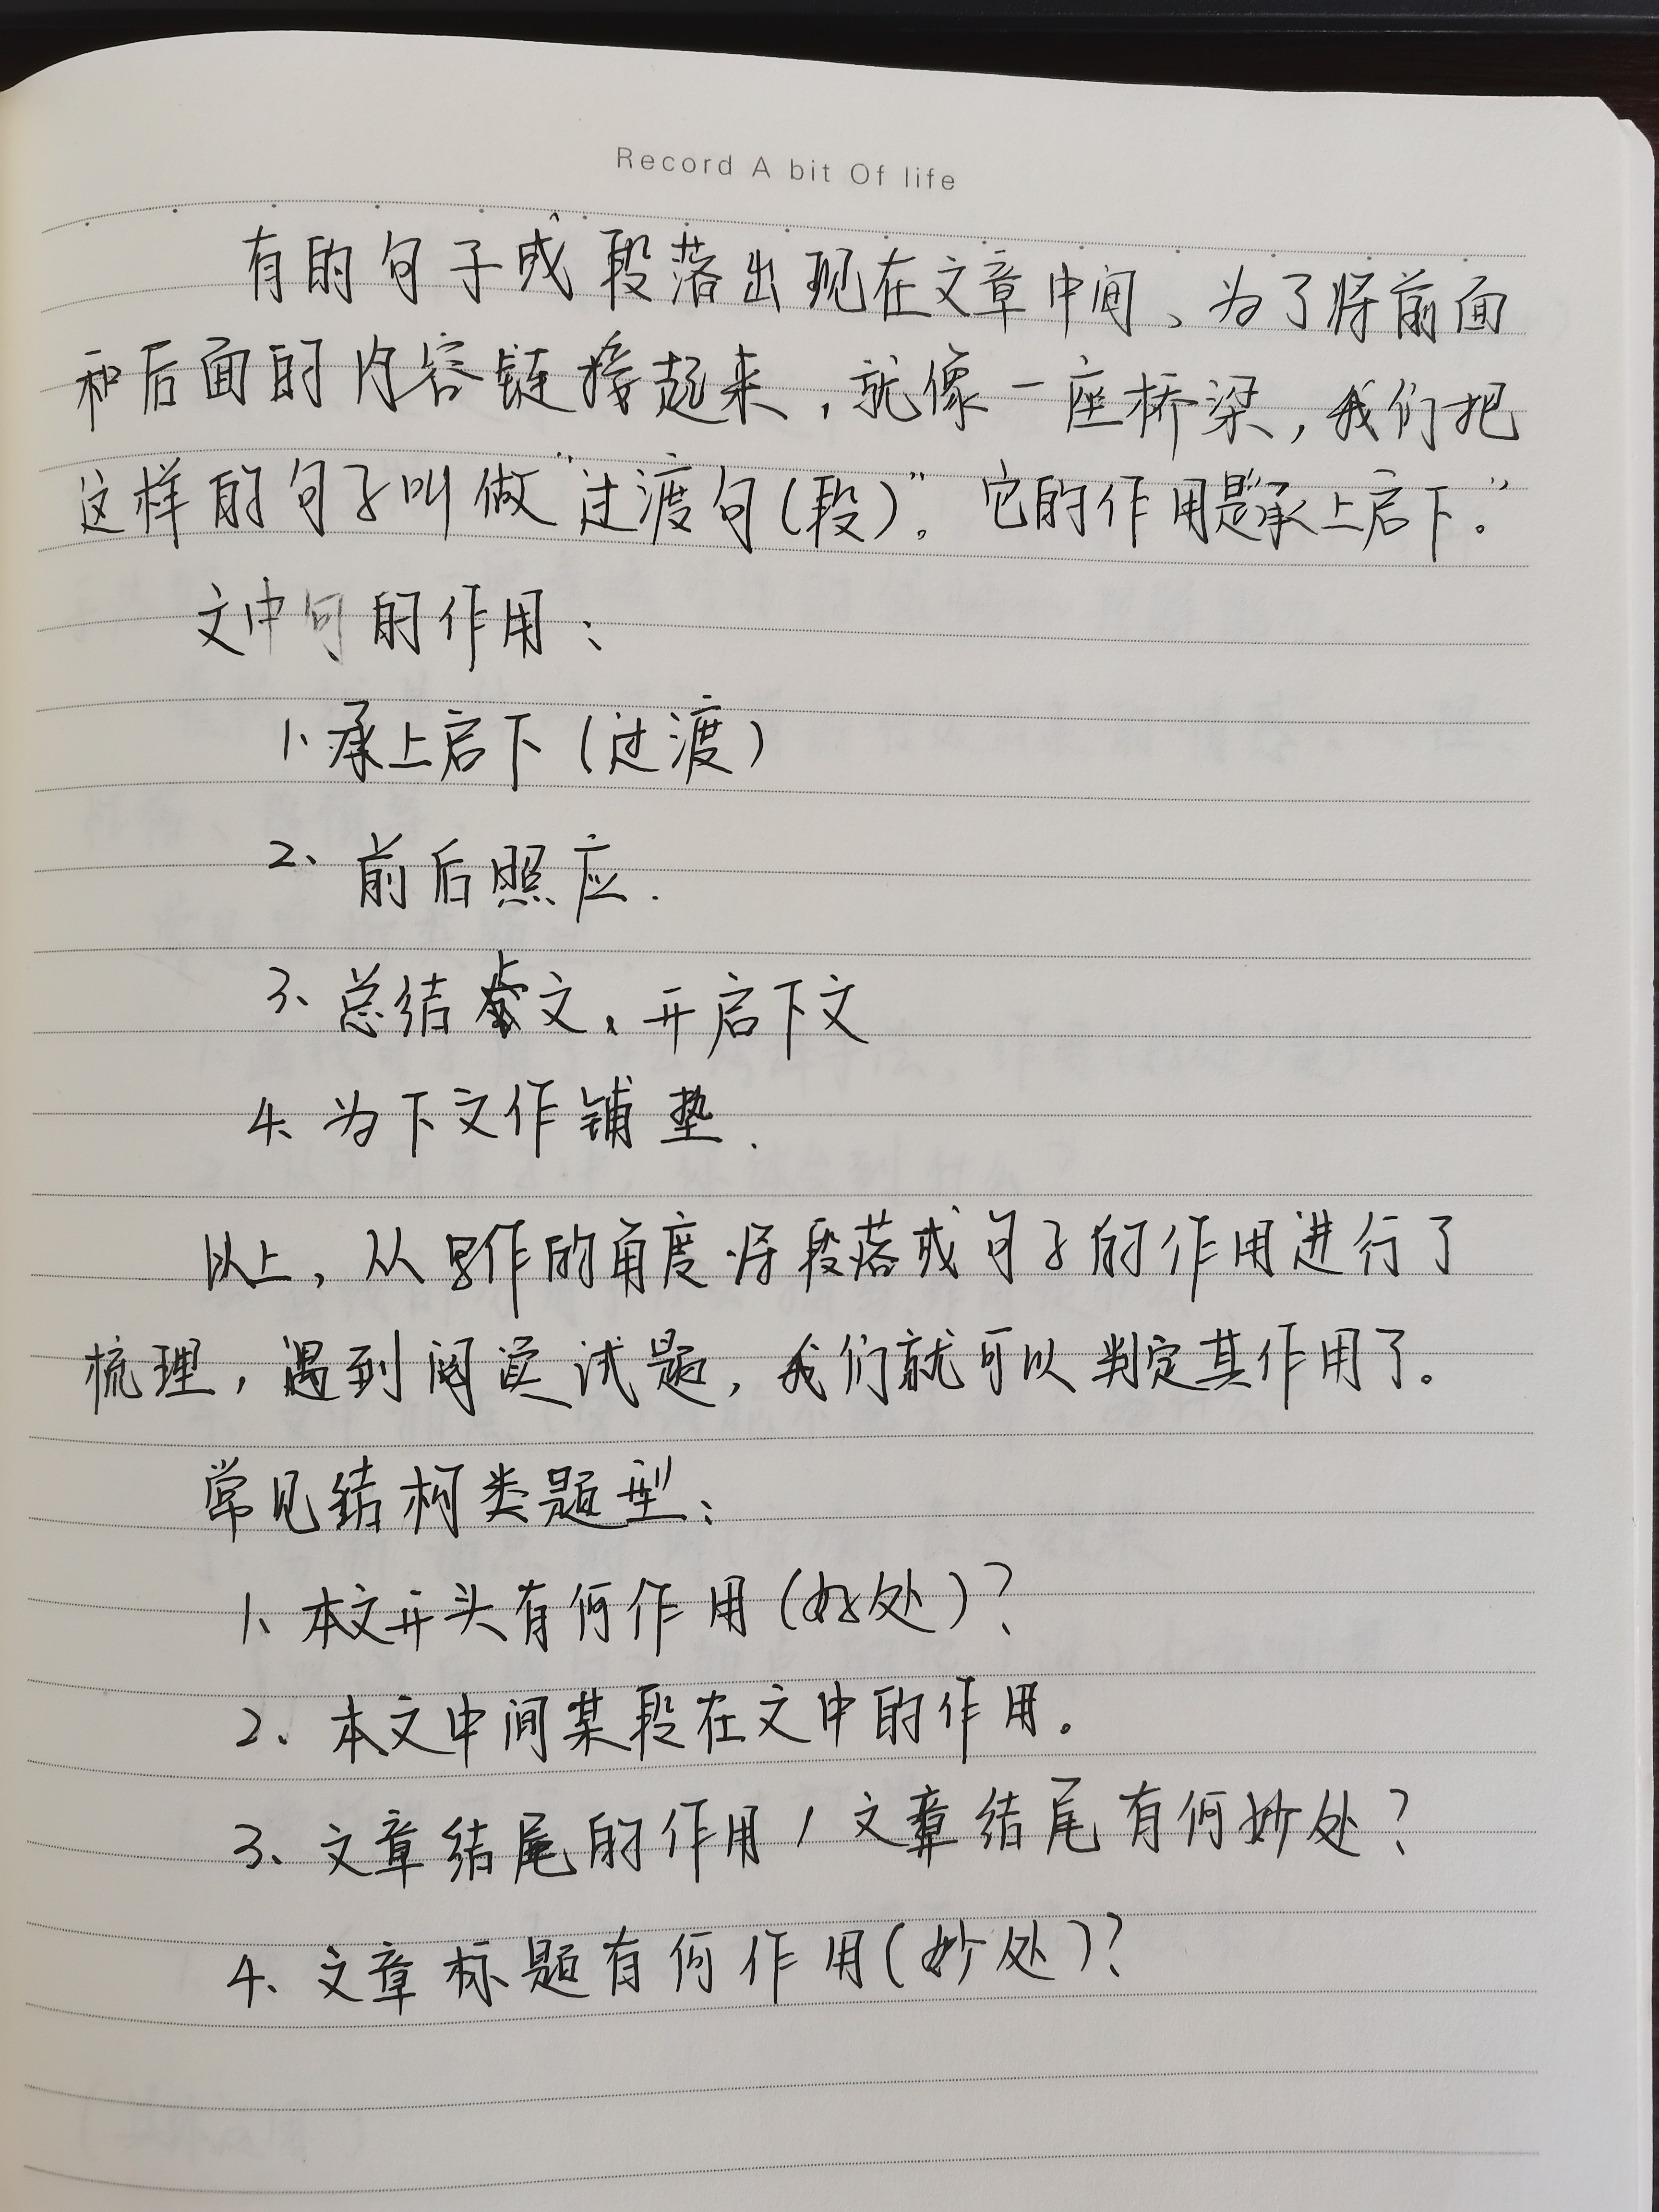 Record A bit Of life
有的句子或段落出现在文章中间、为了将前面
和后面的内容链接起来，就像一座桥梁，我们把
这样的句子叫做“过渡句（段）”。它的作用是“承上启下。”
文中句的作用：
1、承上启下（过渡）
2、前后照应.
3、总结上文、开启下文
4、为下文作铺垫.
以上，从写作的角度将段落或句子的作用进行了
梳理，遇到阅读试题，我们就可以判定其作用了。
常见结构类题型：
1、本文开头有何作用（好处）？
2、本文中间某段在文中的作用。
3、文章结尾的作用/文章结尾有何妙处？
4、文章标题有何作用（妙处）？